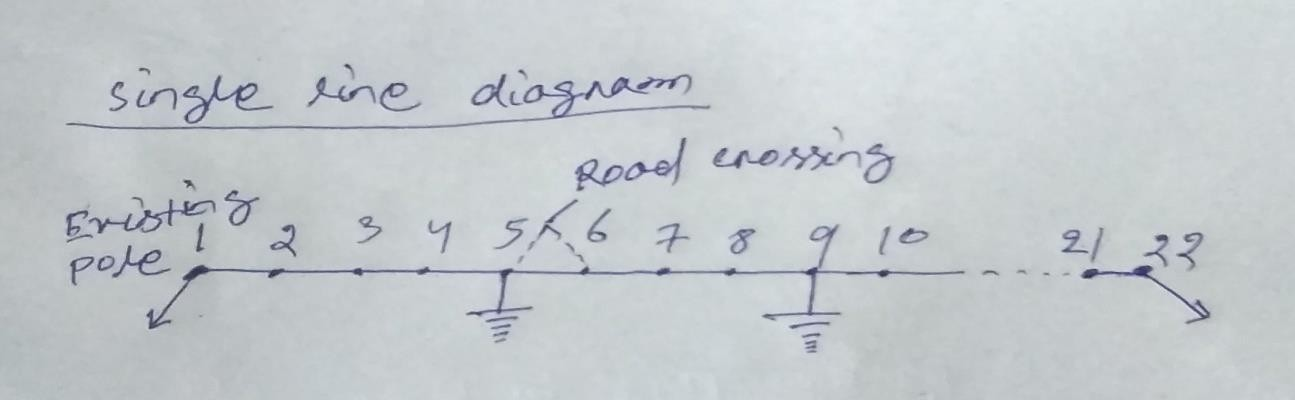 single line diagram
Road crossing
Existing
pole
1 2 3 4 5 6 7 8 9 10 21 22